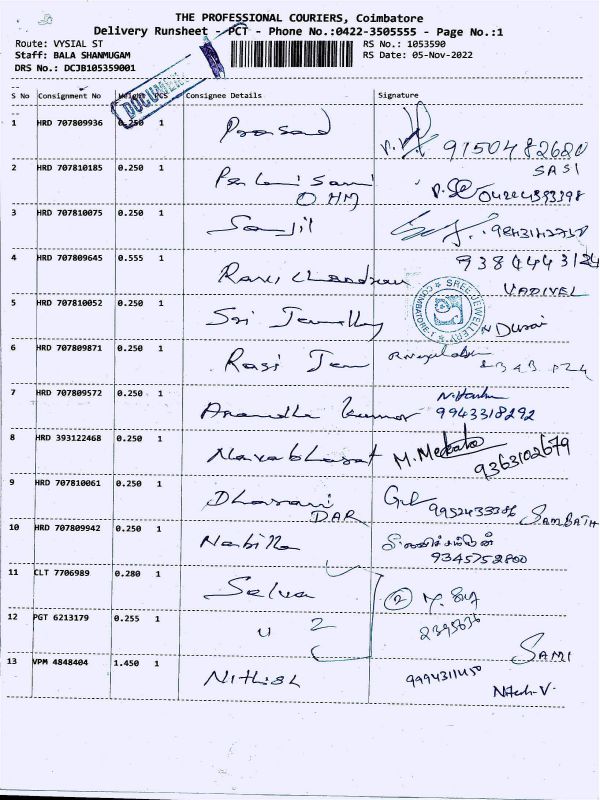 THE PROFESSIONAL COURIERS, Coimbatore
Delivery Runsheet - PCT - Phone No.:0422-3505555 - Page No.:1
Route: VYSIAL ST RS No.: 1053590
Staff: BALA SHANMUGAM RS Date: 05-Nov-2022
DRS No.: DCJB105359001
DOCUMENT
S No Consignment No Weight PCS Consignee Details Signature
1 HRD 707809936 0.250 1 Prasad 9150482620
2 HRD 707810185 0.250 1 SASI
OHM
3 HRD 707810075 0.250 1 Sanjil
4 HRD 707809645 0.555 1 Ravi chandran 9384443124
VADIVEL
5 HRD 707810052 0.250 1 Sri Jewellery SREE JEWELLERY COIMBATORE-1 N Durai
6 HRD 707809871 0.250 1 Rasi Jew
7 HRD 707809572 0.250 1 Anandha kumar 9943318292
8 HRD 393122468 0.250 1 Navabharat M. 9363102679
9 HRD 707810061 0.250 1 Dharani 9952433386 SAMBATH
DAR
10 HRD 707809942 0.250 1 Nabilla 9345752800
11 CLT 7706989 0.280 1 Selva 2
12 PGT 6213179 0.255 1 u 2 2395636
SAMI
13 VPM 4848404 1.450 1 Nithish 9994311450
Nitesh-V.